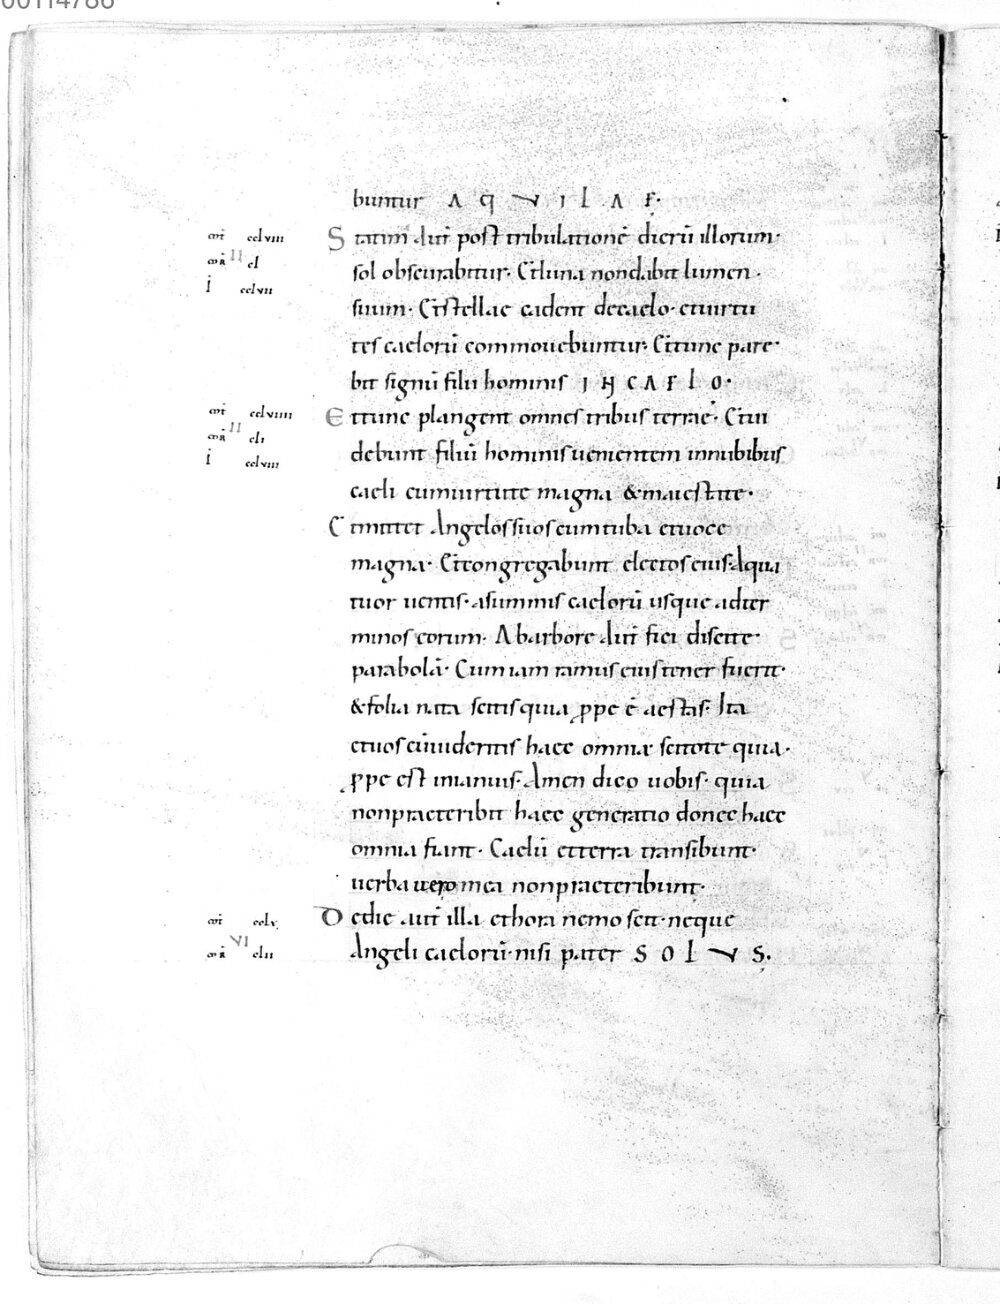 00114786
buntur AQVILAE·
mt cclviii Statim aut̄ post tribulationē dierū illorum·
mr II cl sol obscurabitur· Et luna nondabit lumen·
i cclvii suum· Et stellae cadent decaelo· etuirtu
tes caelorū commouebuntur· Et tunc pare·
bit signū filii hominis IN CAELO·
mt cclviiii Ettunc plangent omnes tribus terrae· Et ui
mr II cli debunt filiū hominis uenientem innubibus
i cclviii caeli cumuirtute magna &maiestate·
Etmittet Angelos suos cumtuba etuoce
magna· Et congregabunt electos eius Aqua
tuor uentis· asummis caelorū usque adter
minos eorum· Abarbore aut̄ fici discite·
parabolā· Cum iam ramus eius tener fuerit·
&folia nata scitis quia ꝓpe ē aestas· Ita
etuos cū uideritis haec omnia scitote quia·
ꝓpe est inianuis· Amen dico uobis· quia
nonpraeteribit haec generatio donec haec
omnia fiant· Caelū etterra transibunt·
uerba uero mea nonpraeteribunt·
mt cclx Dedie aut̄ illa ethora nemo scit· neque
mr VI clii Angeli caelorū· nisi pater SOLVS·